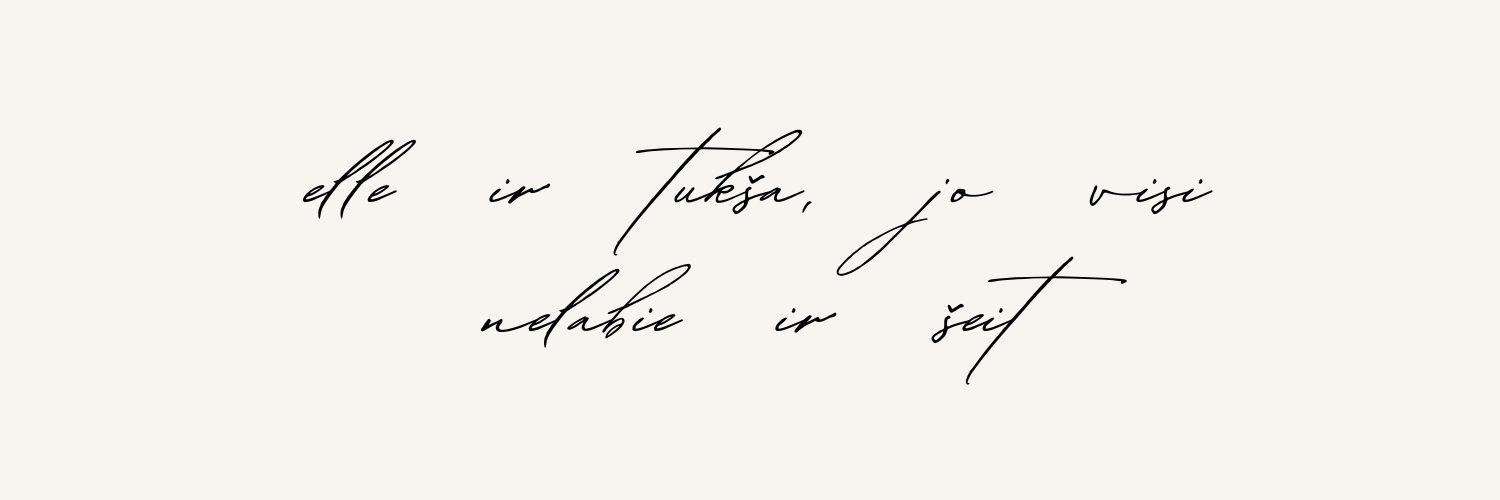 elle ir tukša, jo visi
nelabie ir šeit